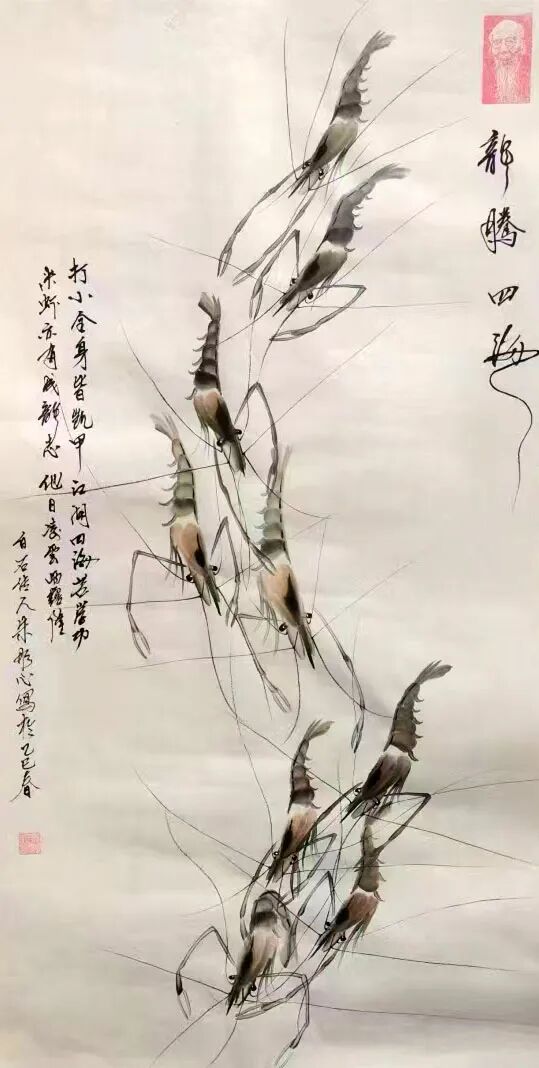 龍騰四海
打小全身皆凱甲 江闹四海苦學功
米虾亦有成龍志 他日凌雲
白石传人朱心寫於乙巳春